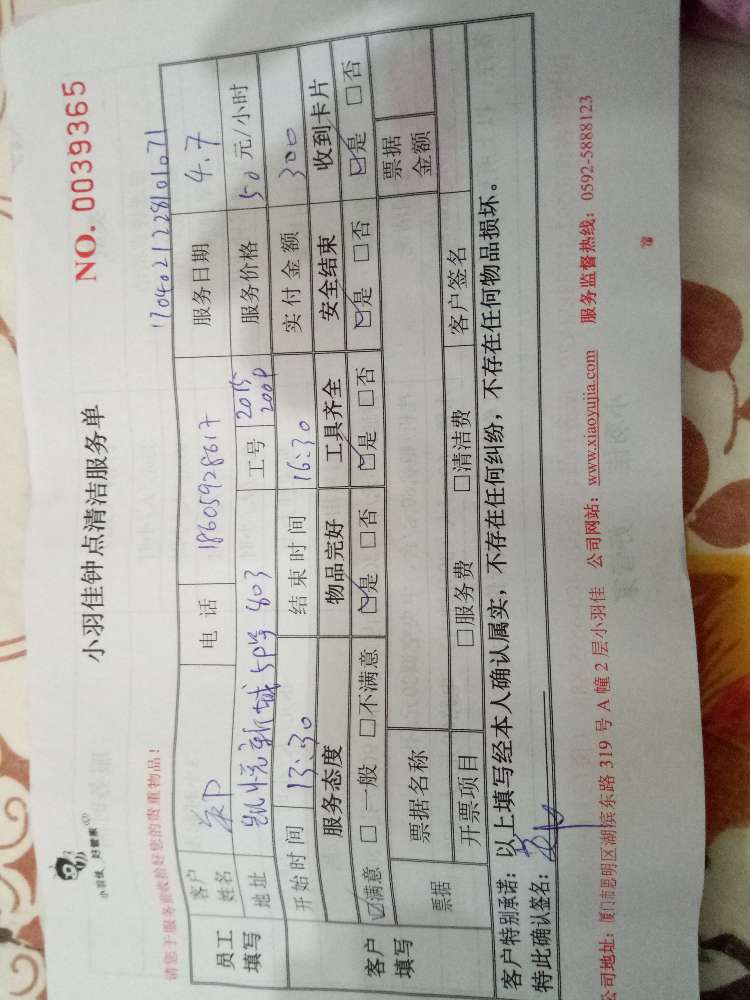 小羽佳 好管家
小羽佳钟点清洁服务单
NO. 0039365
请您于服务前收拾好您的贵重物品！
170402122810107 1
员工填写 客户姓名 电话 18605928617 服务日期 4.7
地址 新城 5P 803 工号 2015 服务价格 50 元/小时
2009
开始时间 13:30 结束时间 16:30 实付金额 300
客户填写 服务态度 物品完好 工具齐全 安全结束 收到卡片
☑满意 □一般 □不满意 ☑是 □否 ☑是 □否 ☑是 □否 ☑是 □否
票据 票据名称 票据金额
开票项目 □服务费 □清洁费 客户签名
客户特别承诺：以上填写经本人确认属实，不存在任何纠纷，不存在任何物品损坏。
特此确认签名：
公司地址：厦门市思明区湖滨东路 319 号 A 幢 2 层小羽佳 公司网站：www.xiaoyujia.com 服务监督热线：0592-5888123